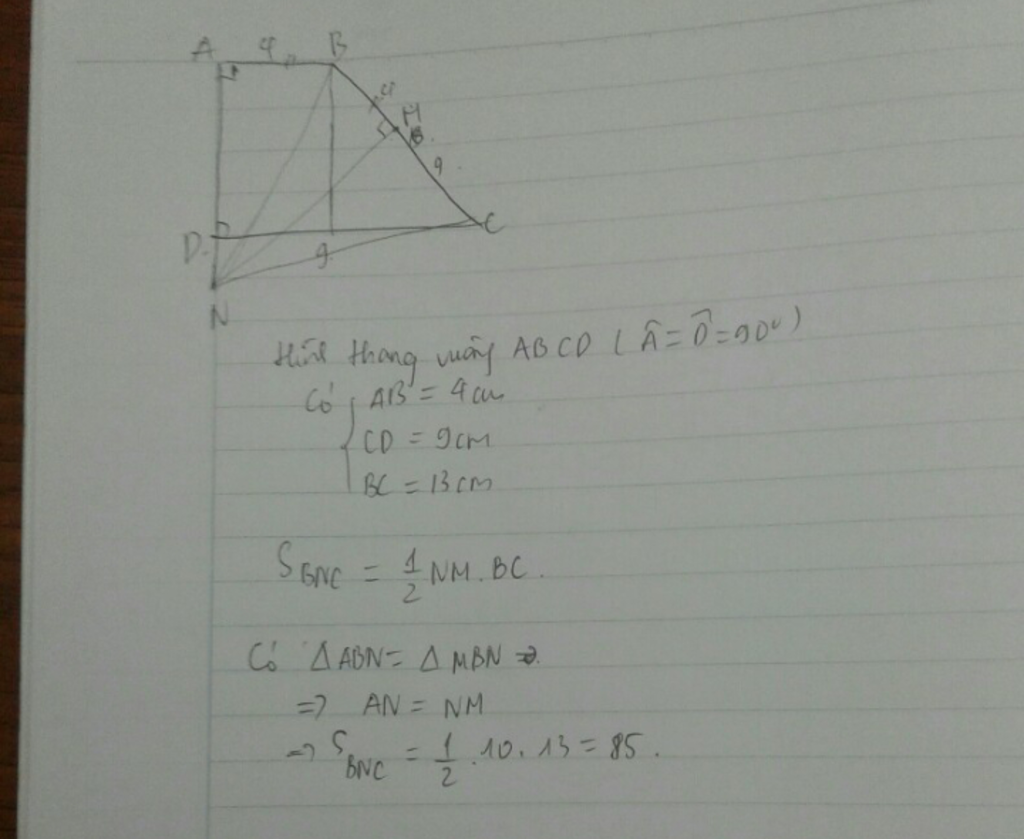 A 4 B
4
M
B
9
C
D 9
N
Hình thang vuông ABCD ( Â = D̂ = 90° )
Có { AB = 4cm
CD = 9cm
BC = 13cm
S_BNC = 1/2 NM . BC .
Có ΔABN = ΔMBN =>.
=> AN = NM
=> S_BNC = 1/2 . 10 . 13 = 85 .